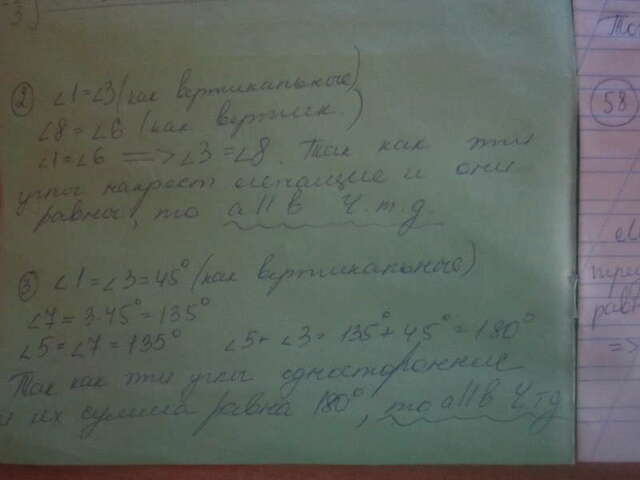 3
② ∠1 = ∠3 (как вертикальные)
∠8 = ∠6 (как вертик.)
∠1 = ∠6 => ∠3 = ∠8. Так как эти
углы накрест лежащие и они
равны, то a || b ч.т.д.
③ ∠1 = ∠3 = 45° (как вертикальные)
∠7 = 3·45° = 135°
∠5 = ∠7 = 135° ∠5 + ∠3 = 135° + 45° = 180°
Так как эти углы односторонние
и их сумма равна 180°, то a || b Ч.т.д
58
рав
=>